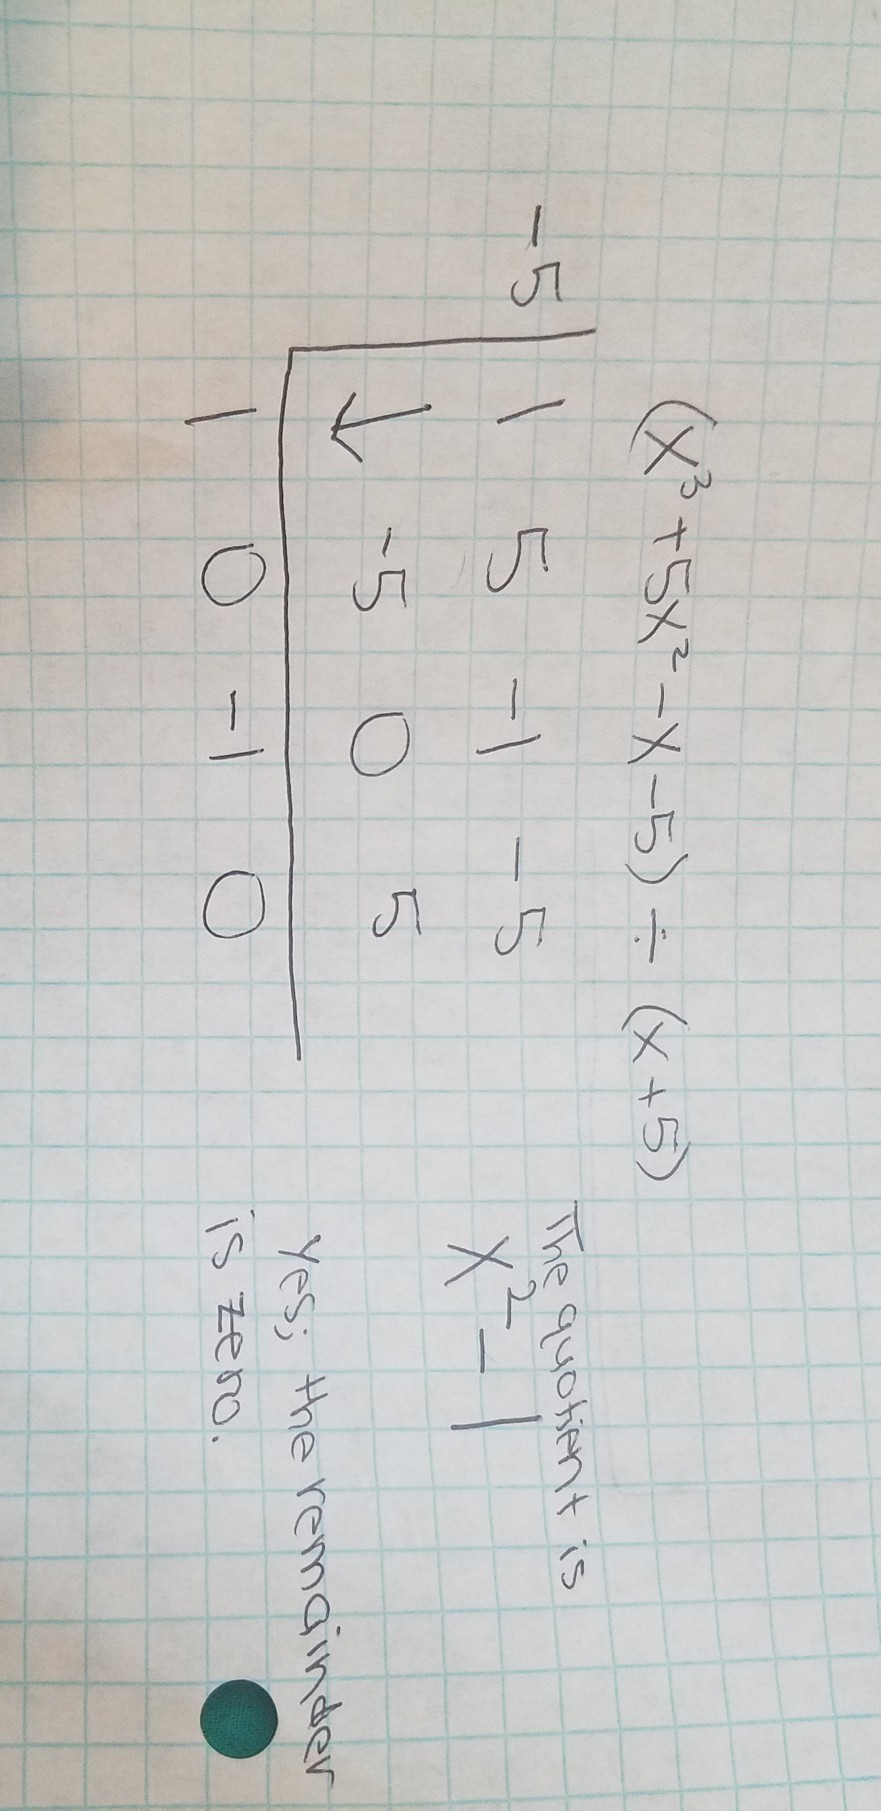 (x³+5x²-x-5) ÷ (x+5)
-5 1 5 -1 -5
↓ -5 0 5
1 0 -1 0
The quotient is
x²-1
Yes; the remainder
is zero.